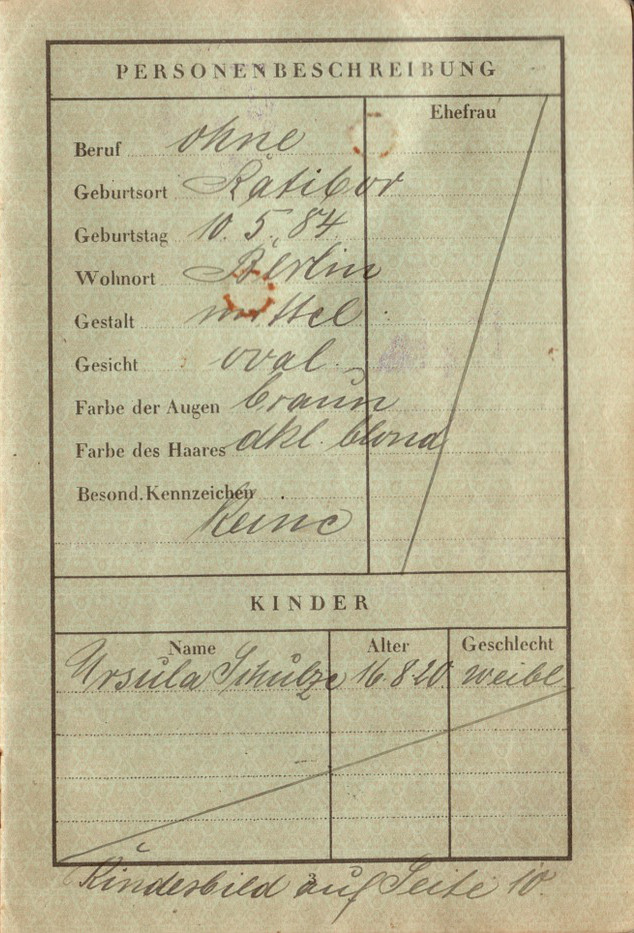 PERSONENBESCHREIBUNG
Ehefrau
Beruf ohne
Geburtsort Ratibor
Geburtstag 10. 5. 84
Wohnort Berlin
Gestalt mittel
Gesicht oval
Farbe der Augen braun
Farbe des Haares dkl. blond
Besond. Kennzeichen
Keine
KINDER
Name Alter Geschlecht
Ursula Schulze 16.8.20. weibl.
Kinderbild auf Seite 10.
3